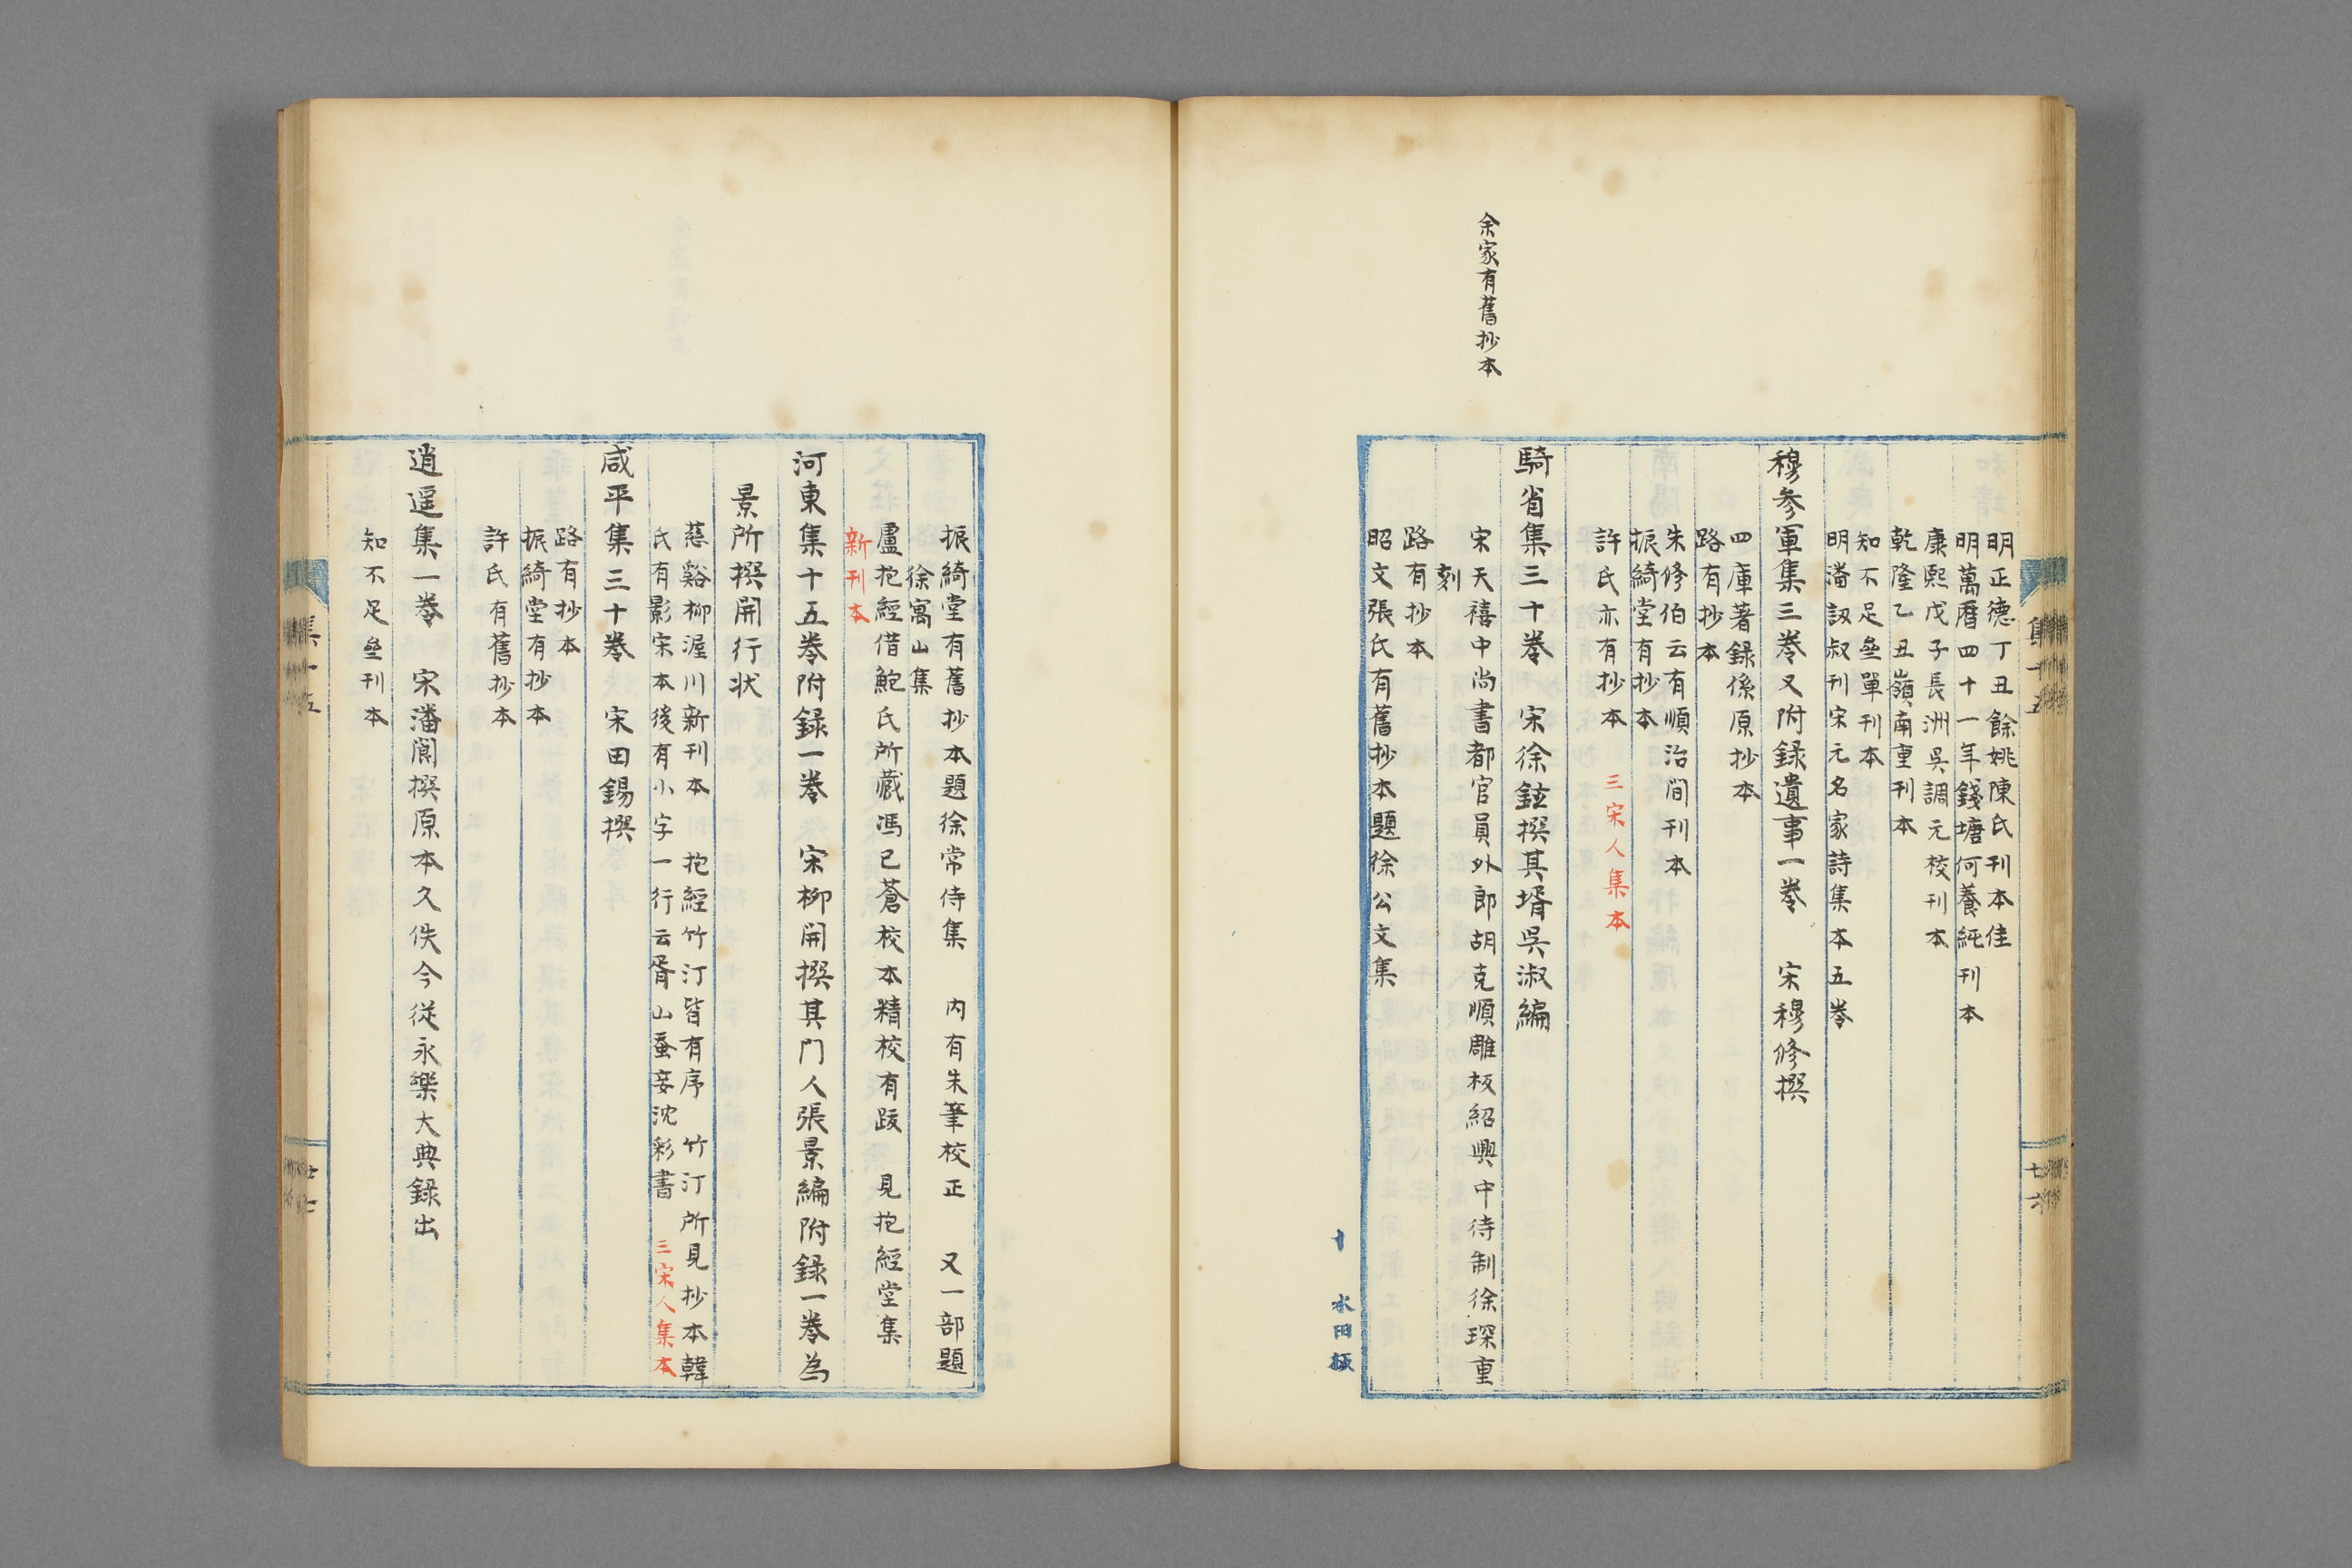 明正德丁丑餘姚陳氏刊本佳
明萬曆四十一年錢塘何養純刊本
康熙戊子長洲吳調元校刊本
乾隆乙丑嶺南重刊本
知不足㕑單刊本
明潘訒叔刊宋元名家詩集本五卷
穆参軍集三卷又附録遺事一卷　宋穆修撰
四庫著錄係原抄本
路有抄本
朱修伯云有順治間刊本
振綺堂有抄本
許氏亦有抄本　三宋人集本
騎省集三十卷　宋徐鉉撰其壻吳淑編
余家有舊抄本
宋天禧中尚書都官員外郎胡克順雕板紹興中待制徐琛重
刻
路有抄本
昭文張氏有舊抄本題徐公文集
水田板
振綺堂有舊抄本題徐常侍集　內有朱筆校正　又一部題
徐寓山集
盧抱經借鮑氏所藏馮已蒼校本精校有跋　見抱經堂集
新刊本
河東集十五卷附録一卷　宋柳開撰其门人張景編附錄一卷為
景所撰開行状
慈谿柳渥川新刊本　抱經竹汀皆有序　竹汀所見抄本韓
氏有影宋本後有小字一行云胥山蚕妾沈彩書　三宋人集本
咸平集三十卷　宋田錫撰
路有抄本
振綺堂有抄本
許氏有舊抄本
逍遥集一卷　宋潘閬撰原本久佚今從永樂大典録出
知不足㕑刊本
集十五